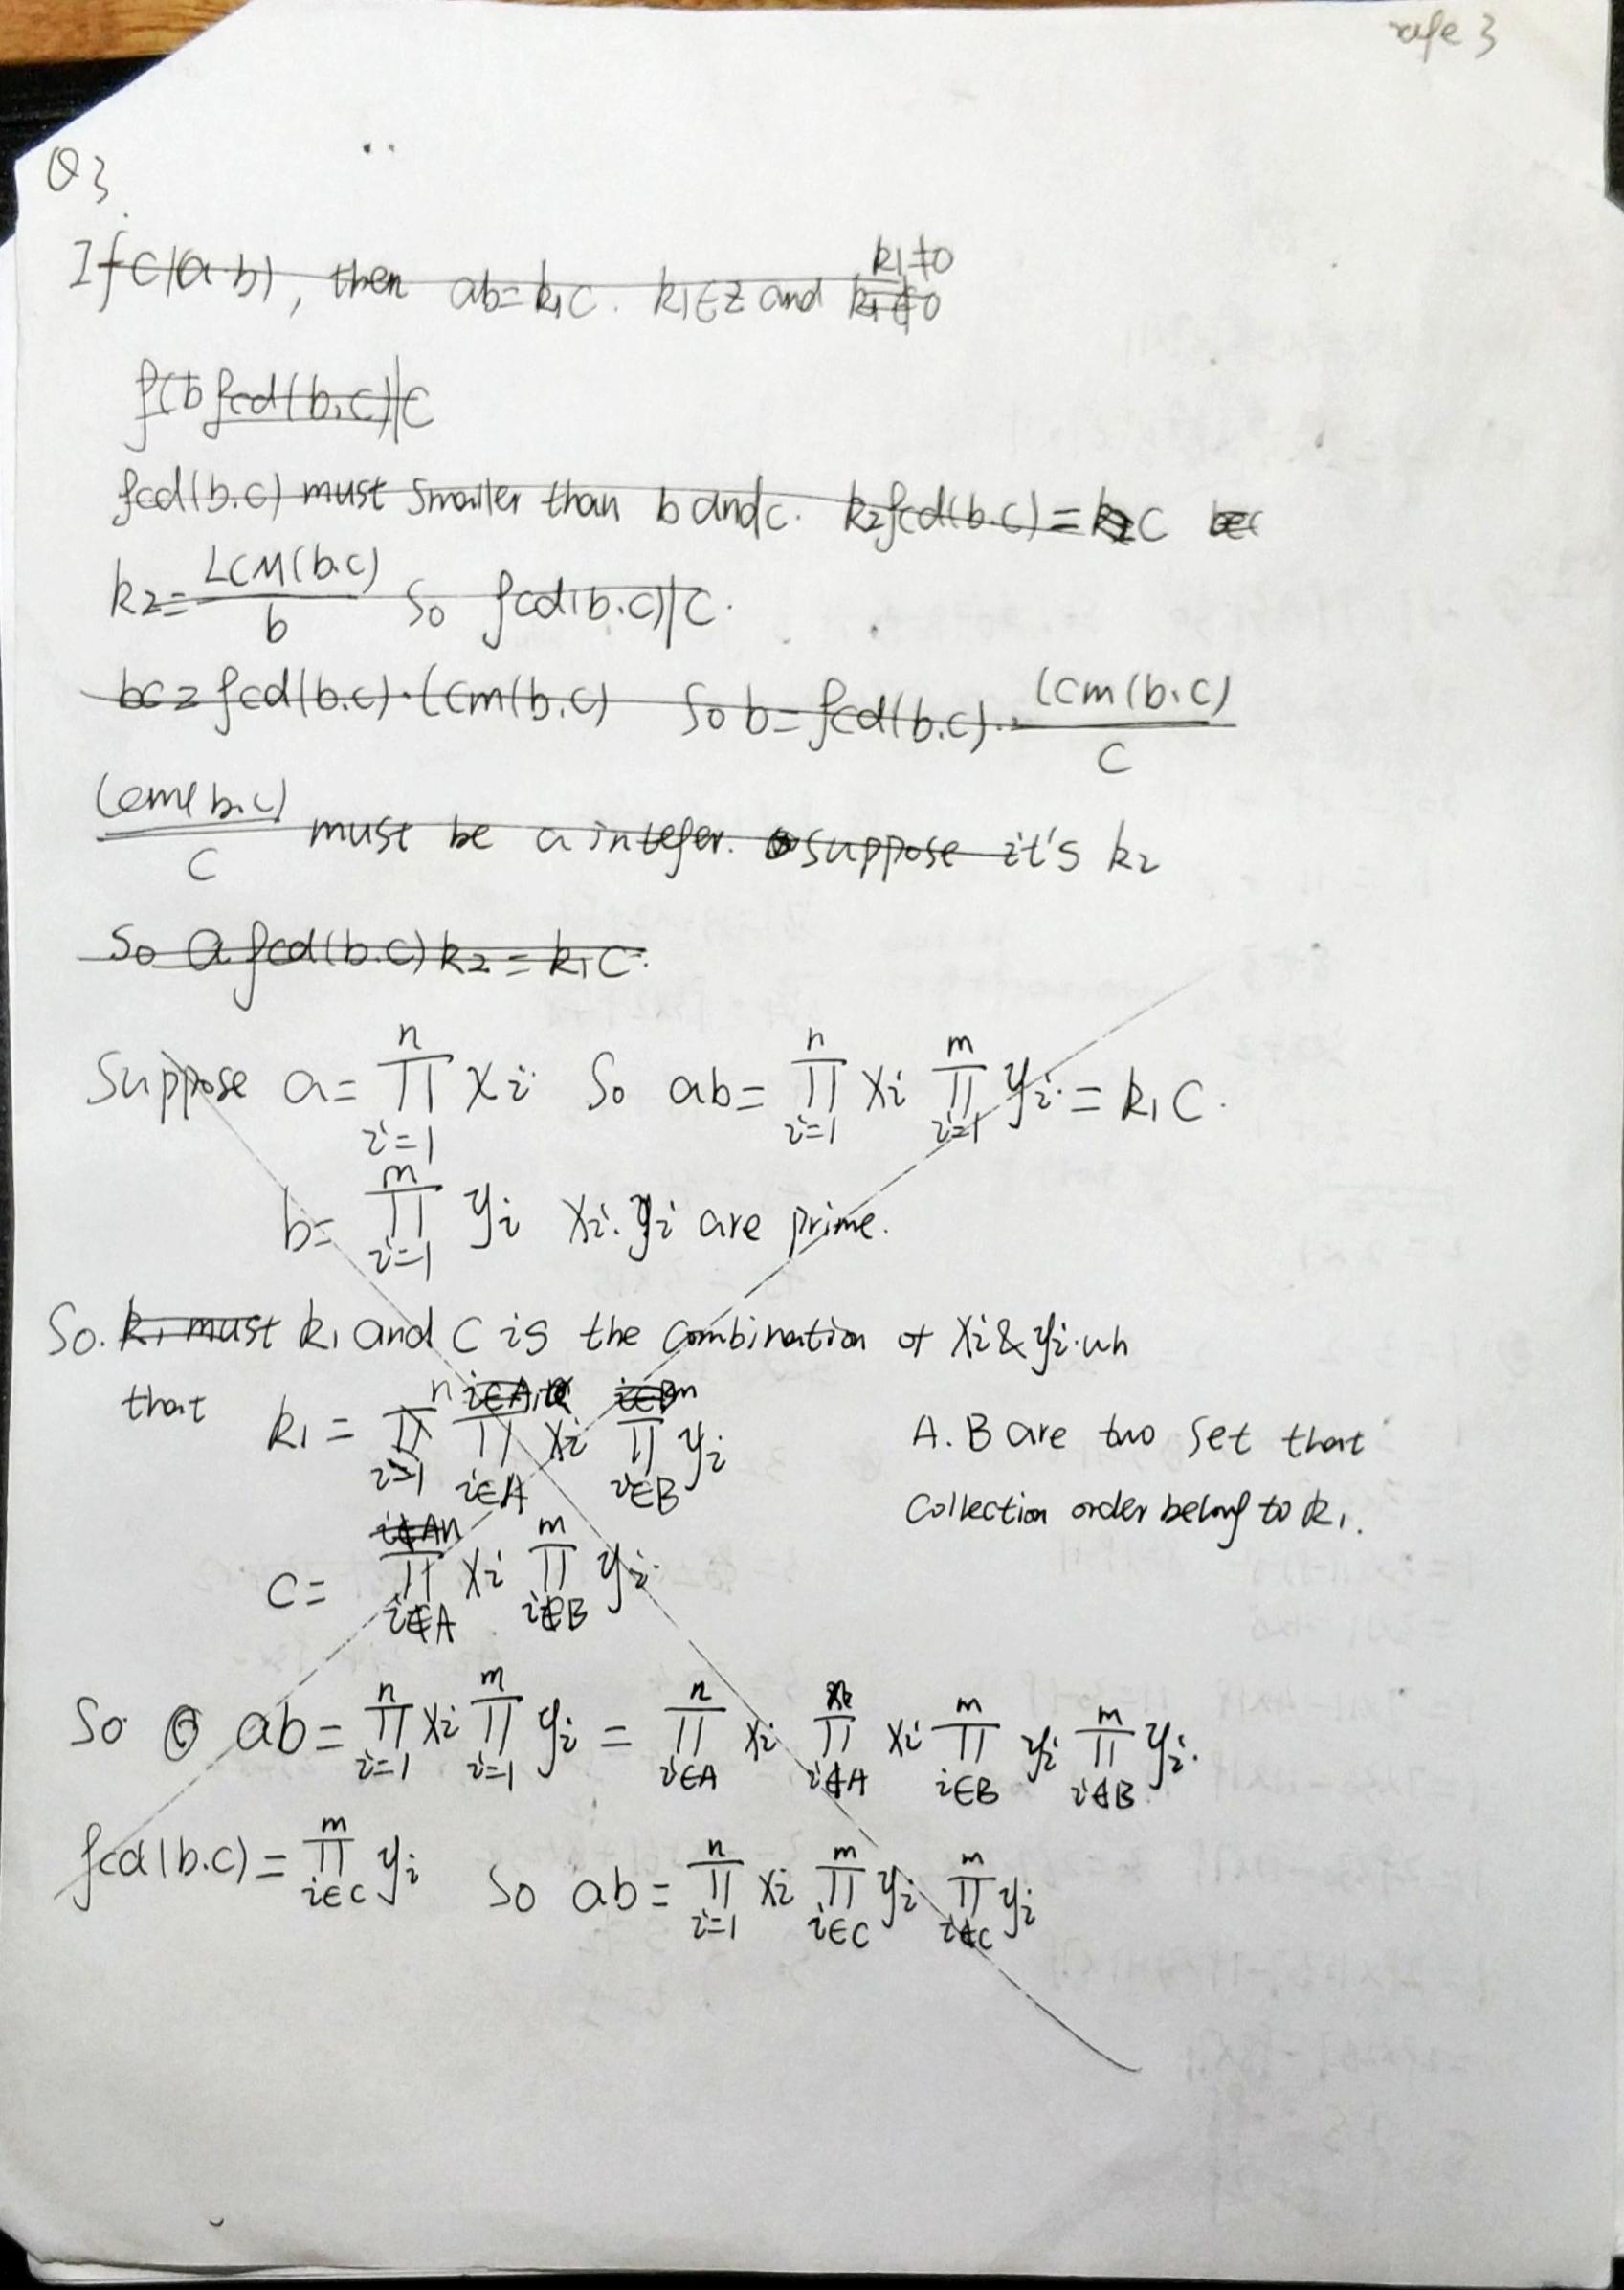 page 3
Q3
If c|(a·b), then ab=k₁c. k₁∈Z and k₁≠0
gcd(b,c)|c
gcd(b.c) must smaller than b and c. k₂gcd(b.c)=c
k₂=LCM(b.c)/b So gcd(b.c)|c.
bc=gcd(b.c)·lcm(b.c) So b=gcd(b.c)·lcm(b,c)/c
lcm(b.c)/c must be a integer. suppose it's k₂
So a gcd(b.c)k₂=k₁c.
Suppose a=∏_{i=1}^{n} xi So ab=∏_{i=1}^{n} xi ∏_{i=1}^{m} yi=k₁c.
b=∏_{i=1}^{m} yi xi.yi are prime.
So. k₁ must k₁ and c is the combination of xi&yi.
that k₁=∏_{i=1}^{n} ∏_{i∈A} xi ∏_{i∈B} yi A.B are two set that
collection order belong to k₁.
c=∏_{i∉A} xi ∏_{i∉B}^{m} yi.
So ab=∏_{i=1}^{n} xi ∏_{i=1}^{m} yi=∏_{i∈A}^{n} xi ∏_{i∉A} xi ∏_{i∈B}^{m} yi ∏_{i∉B}^{m} yi.
gcd(b.c)=∏_{i∈C}^{m} yi So ab=∏_{i=1}^{n} xi ∏_{i∈C}^{m} yi ∏_{i∉C}^{m} yi